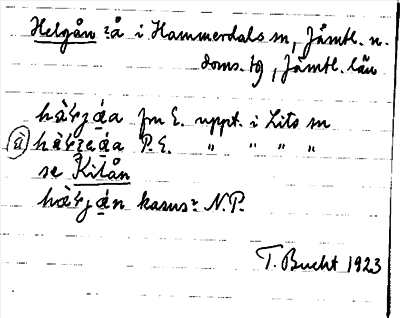 Helgån ?å i Hammerdals sn, Jämtl. n.
doms. tg, Jämtl. län
fm E. uppt. i Lits sn
P. E. " " " "
se Kilån
kasus? N.P.
T. Bucht 1923